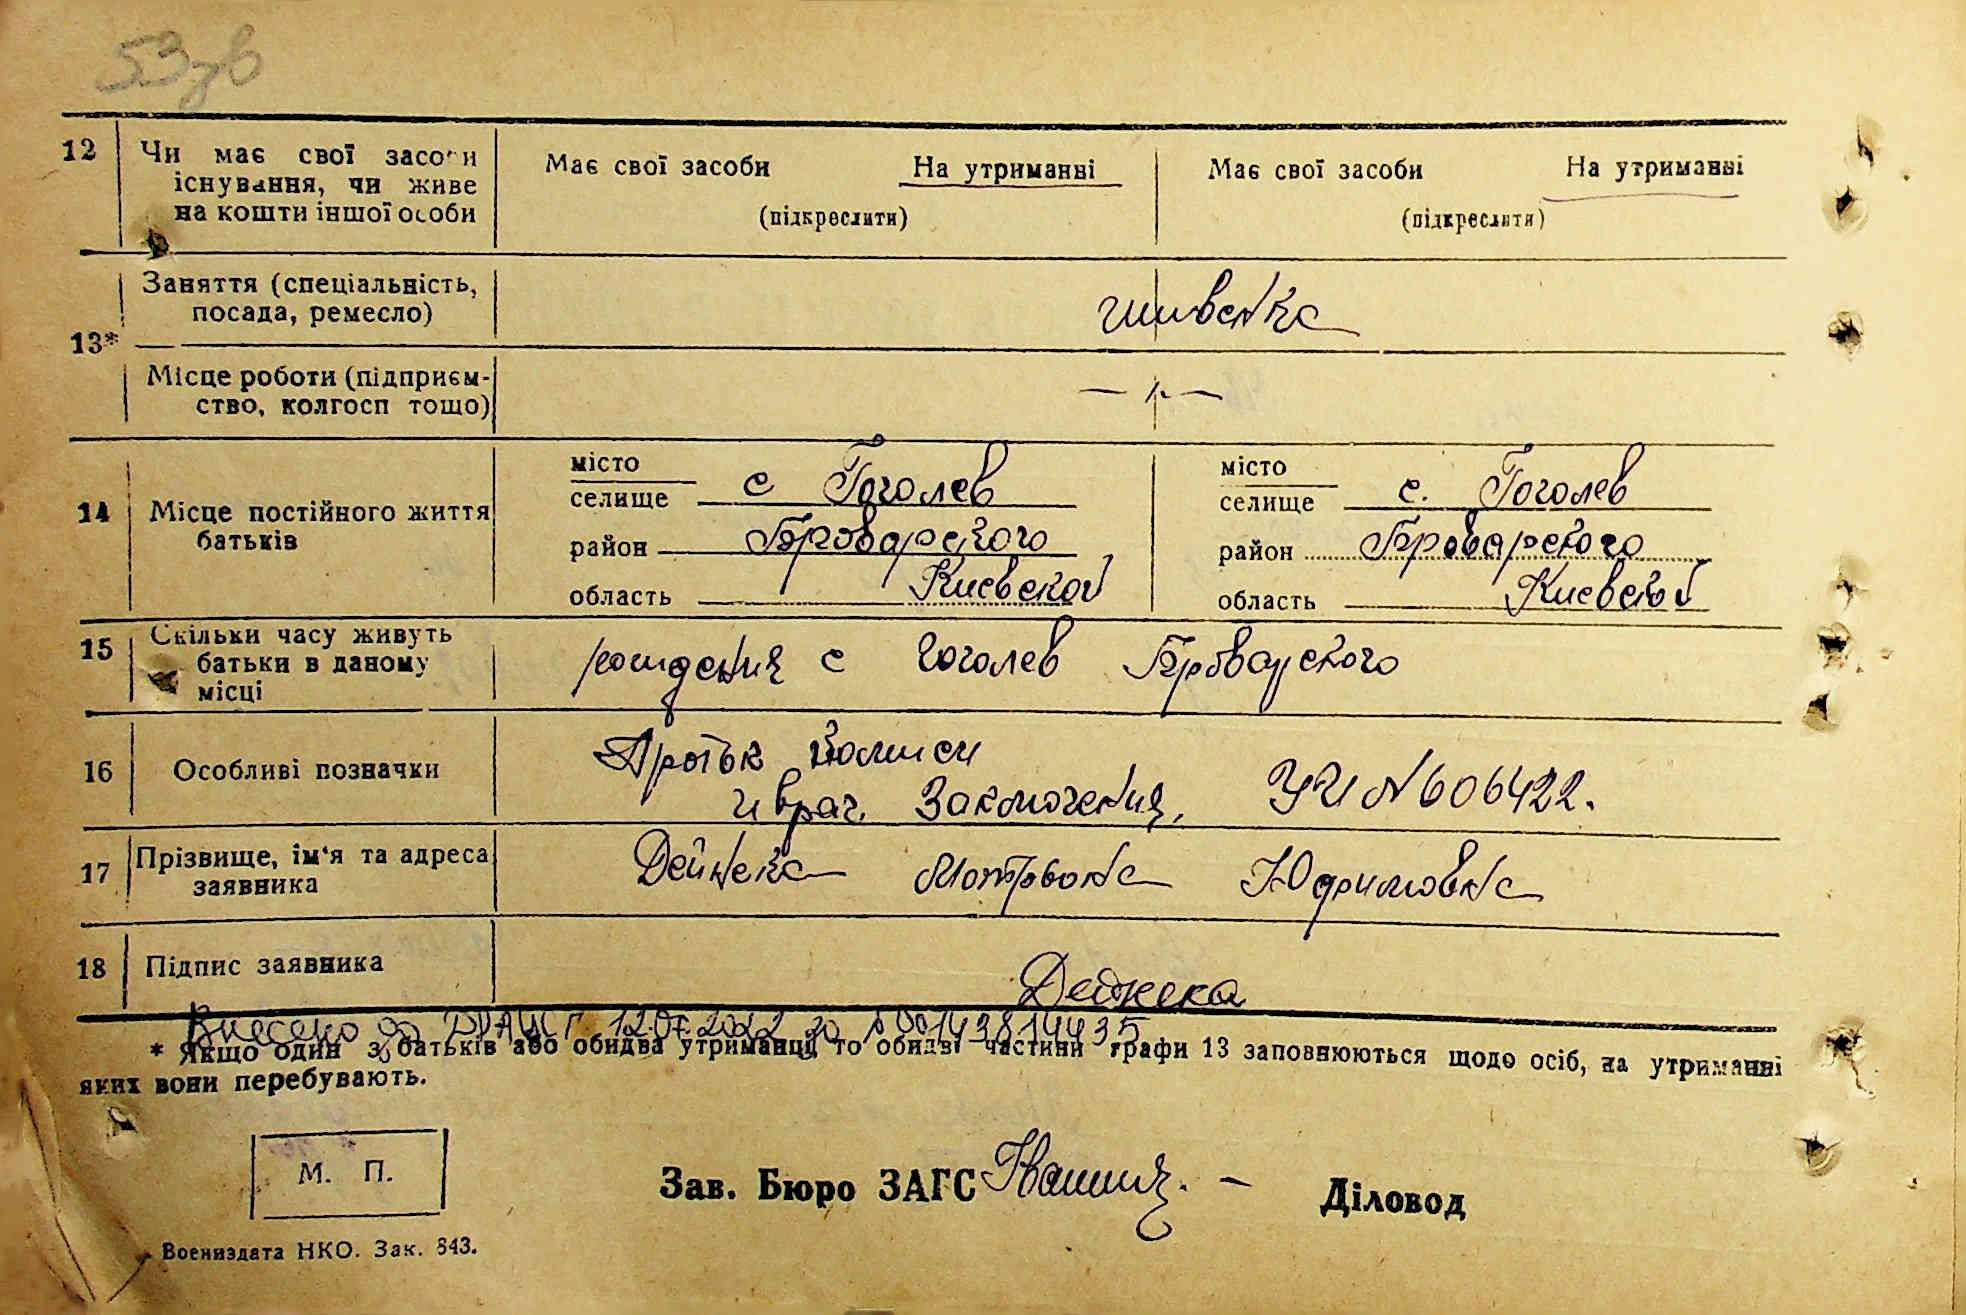 53зв
12 Чи має свої засоби Має свої засоби На утриманні Має свої засоби На утриманні
існування, чи живе
на кошти іншої особи (підкреслити) (підкреслити)
Заняття (спеціальність, швейка
посада, ремесло)
13*
Місце роботи (підприєм- — „ —
ство, колгосп тощо)
місто місто
селище с Гоголев селище с. Гоголев
14 Місце постійного життя
батьків
район Броварского район Броварского
область Киевской область Киевской
15 Скільки часу живуть
батьки в даному рождения с Гоголев Броварского
місці
16 Особливі позначки
и врач. Заключения, УИ № 606422.
17 Прізвище, ім'я та адреса Дейнека Мотрона Юфимовна
заявника
18 Підпис заявника Дейнека
Внесено до ДРАЦСГ 12.07.2022 за № 00143814435
* Якщо один з батьків або обидва утриманці, то обидві частини графи 13 заповнюються щодо осіб, на утриманні
яких вони перебувають.
М. П.
Зав. Бюро ЗАГС Діловод
Воениздата НКО. Зак. 843.